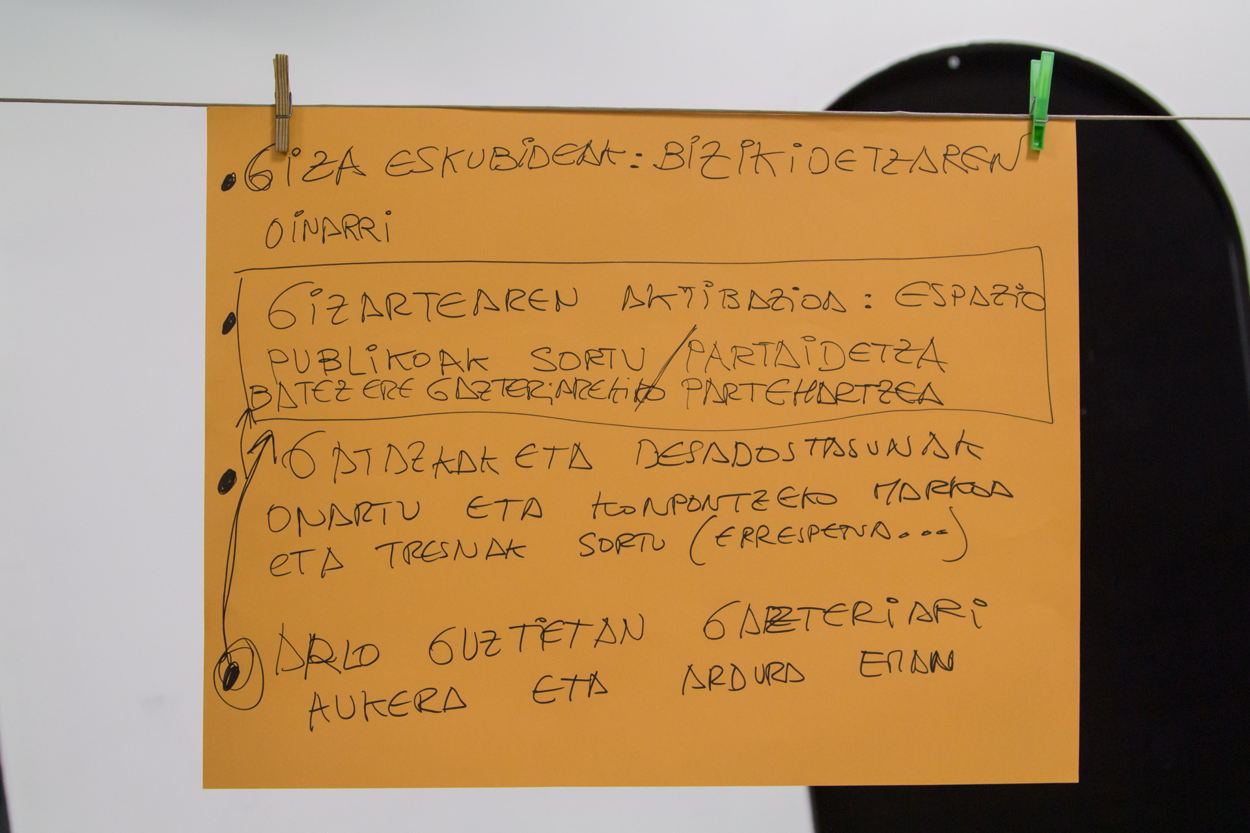 • GIZA ESKUBIDEAK: BIZIKIDETZAREN
OINARRI
• GIZARTEAREN AKTIBAZIOA: ESPAZIO
PUBLIKOAK SORTU / PARTAIDETZA
BATEZ ERE GAZTERIAREKIKO PARTEHARTZEA
• GATAZKAK ETA DESADOSTASUNAK
ONARTU ETA KONPONTZEKO MARKOA
ETA TRESNAK SORTU (ERRESPETUA...)
• ARLO GUZTIETAN GAZTERIARI
AUKERA ETA ARDURA EMAN